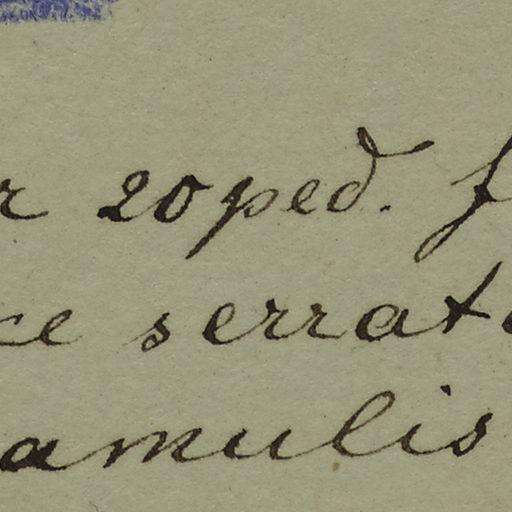 r 20ped. f
ce serrate
amulis